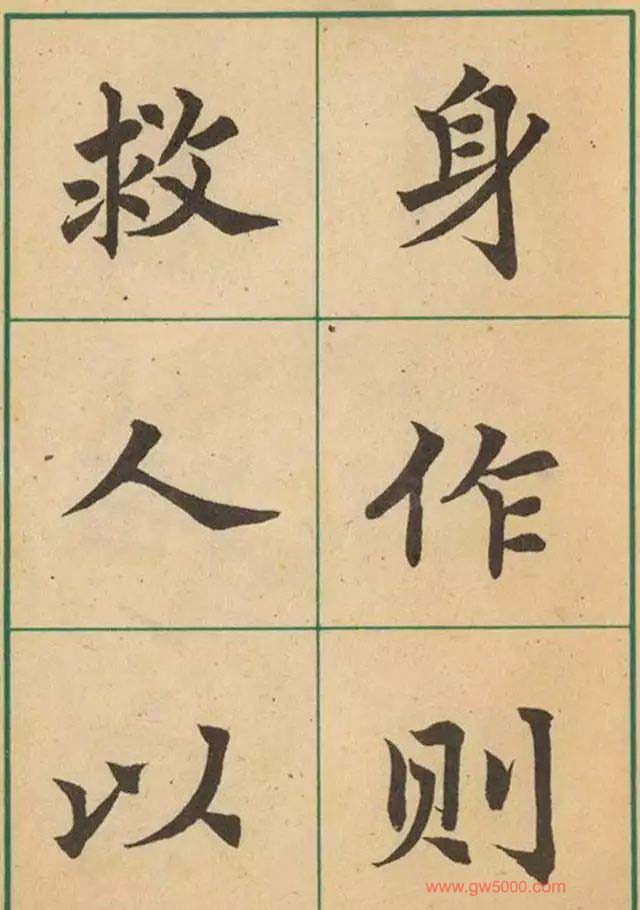 身作则
救人以
www.gw5000.com